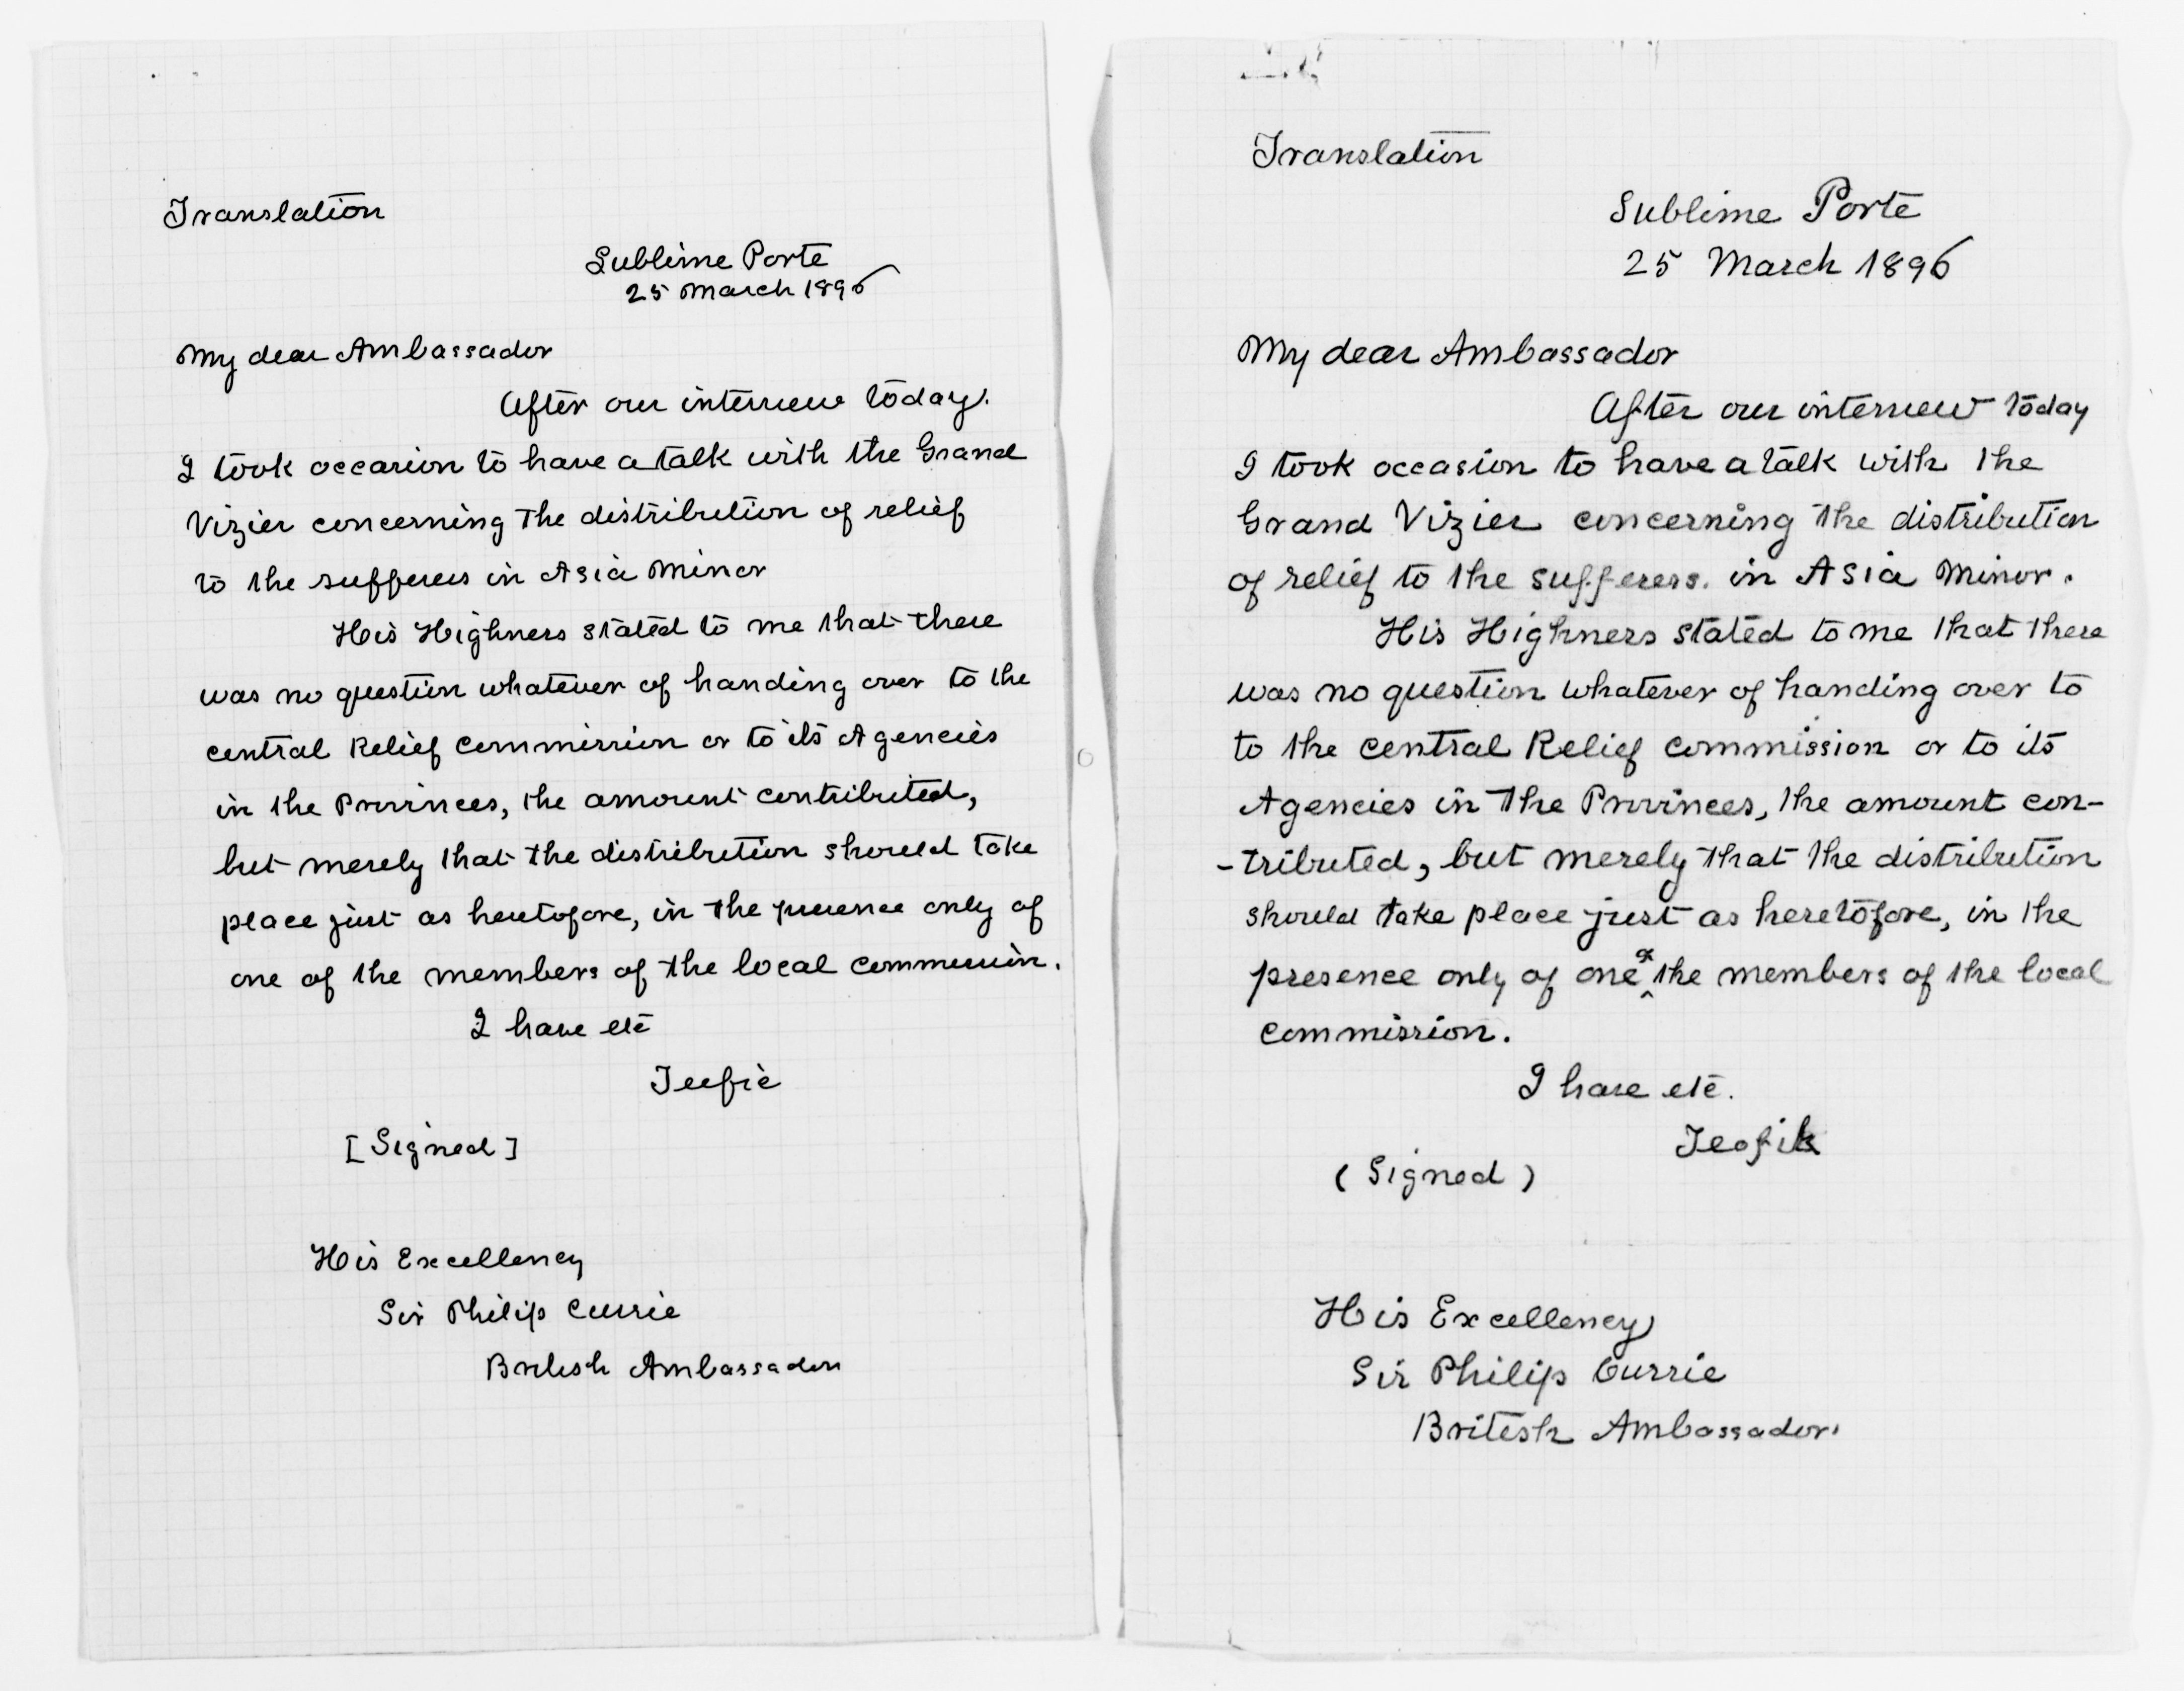 Translation
Sublime Porte
25 March 1896
My dear Ambassador
After our interview today.
I took occasion to have a talk with the Grand
Vizier concerning the distribution of relief
to the sufferers in Asia Minor
His Highness stated to me that there
was no question whatever of handing over to the
central Relief commission or to its Agencies
in the Provinces, the amount contributed,
but merely that the distribution should take
place just as heretofore, in the presence only of
one of the members of the local commission.
I have etc
Teefic
[Signed]
His Excellency
Sir Philip Currie
British Ambassador
Translation
Sublime Porte
25 March 1896
My dear Ambassador
After our interview today
I took occasion to have a talk with the
Grand Vizier concerning the distribution
of relief to the sufferers. in Asia Minor.
His Highness stated to me that there
was no question whatever of handing over to
to the central Relief commission or to its
Agencies in the Provinces, the amount con-
-tributed, but merely that the distribution
should take place just as heretofore, in the
presence only of one of the members of the local
commission.
I have etc.
Teofik
(Signed)
His Excellency
Sir Philip Currie
British Ambassador.